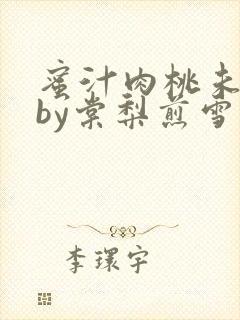 蜜汁肉桃未
by棠梨煎雪
李環宇